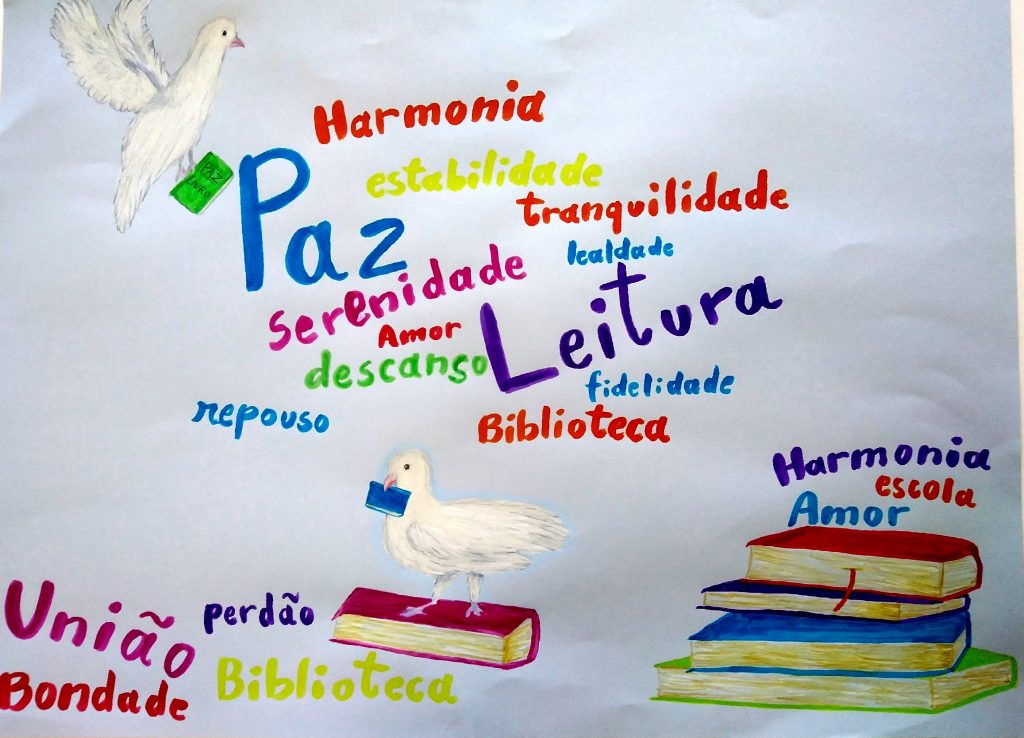 Harmonia
PAZ
LIVRO
Paz
estabilidade
tranquilidade
lealdade
serenidade
Amor
Leitura
descanso
fidelidade
repouso
Biblioteca
Harmonia
escola
Amor
União
perdão
Biblioteca
Bondade